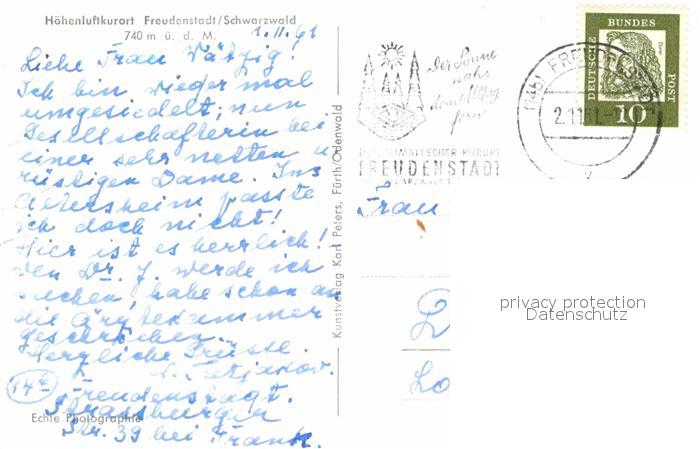 Höhenluftkurort Freudenstadt/Schwarzwald
740 m ü. d. M.
1.11.61
Liebe Frau Wätzig!
Ich bin wieder mal
umgesiedelt; nun
Gesellschafterin bei
einer sehr netten u
rüstigen Dame. Ins
Altersheim passte
ich doch nicht!
Hier ist es herrlich!
Den Dr. J. werde ich
suchen, habe schon an
die Ärztekammer
geschrieben.
Herzliche Grüsse.
(14b) Freudenstadt.
Strassburger
Str. 39 bei Frank.
Echte Photographie
Kunstverlag Karl Peters, Fürth/Odenwald
Der Sonne
nah
dem Alltag
fern
HEILKLIMATISCHER KURORT
FREUDENSTADT
SCHWARZWALD
(14b) FREUDENSTADT
2.11.61
v
DEUTSCHE
BUNDES
POST
Dürer
10
Frau
L
Lo
privacy protection
Datenschutz